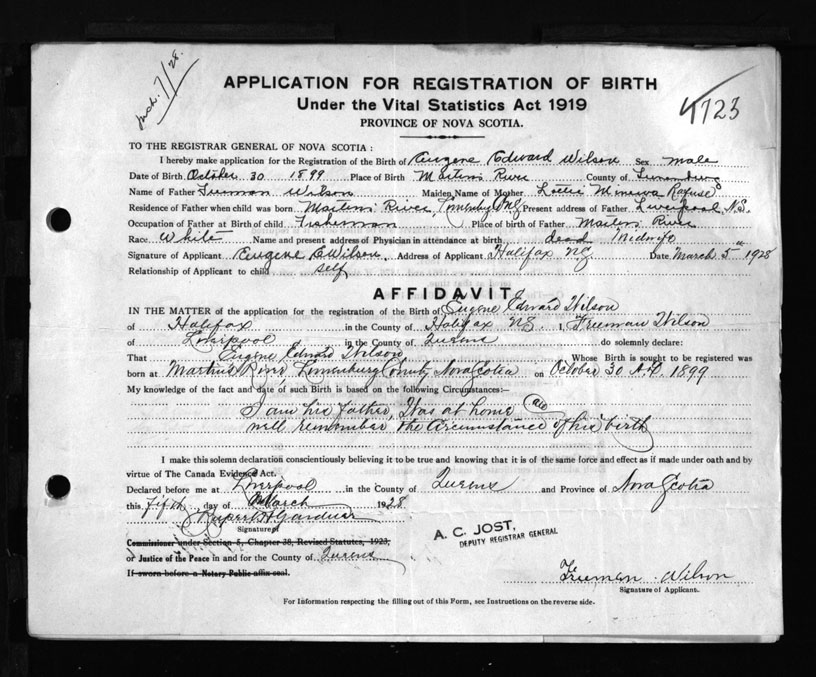 Mch. 7/28.
APPLICATION FOR REGISTRATION OF BIRTH
Under the Vital Statistics Act 1919
PROVINCE OF NOVA SCOTIA.
TO THE REGISTRAR GENERAL OF NOVA SCOTIA :
I hereby make application for the Registration of the Birth of Eugene Edward Wilson Sex male
Date of Birth October 30 1899 Place of Birth Martins River County of Lunenburg
Name of Father Freeman Wilson Maiden Name of Mother Lottie Minerva Rafuse
Residence of Father when child was born Martins River, NS Present address of Father Liverpool N.S.
Occupation of Father at Birth of child Fisherman Place of birth of Father Martins River
Race White Name and present address of Physician in attendance at birth dead Midwife
Signature of Applicant Eugene E Wilson Address of Applicant Halifax NS Date March 5th 1928
Relationship of Applicant to child self
AFFIDAVIT
IN THE MATTER of the application for the registration of the Birth of Eugene Edward Wilson
of Halifax in the County of Halifax NS. I, Freeman Wilson
of Liverpool in the County of Queens do solemnly declare:
That Eugene Edward Wilson Whose Birth is sought to be registered was
born at Martins River, Lunenburg County, Nova Scotia on October 30 A.D. 1899
My knowledge of the fact and date of such Birth is based on the following Circumstances:-
I am his father, Was at home
well remember the circumstance of his birth
I make this solemn declaration conscientiously believing it to be true and knowing that it is of the same force and effect as if made under oath and by
virtue of The Canada Evidence Act.
Declared before me at Liverpool in the County of Queens and Province of Nova Scotia
this fifth day of March 1928
Signature of
Commissioner under Section 5, Chapter 38, Revised Statutes, 1923,
or Justice of the Peace in and for the County of Queens
If sworn before a Notary Public affix seal.
A. C. JOST,
DEPUTY REGISTRAR GENERAL
Freeman Wilson
Signature of Applicant.
For Information respecting the filling out of this Form, see Instructions on the reverse side.